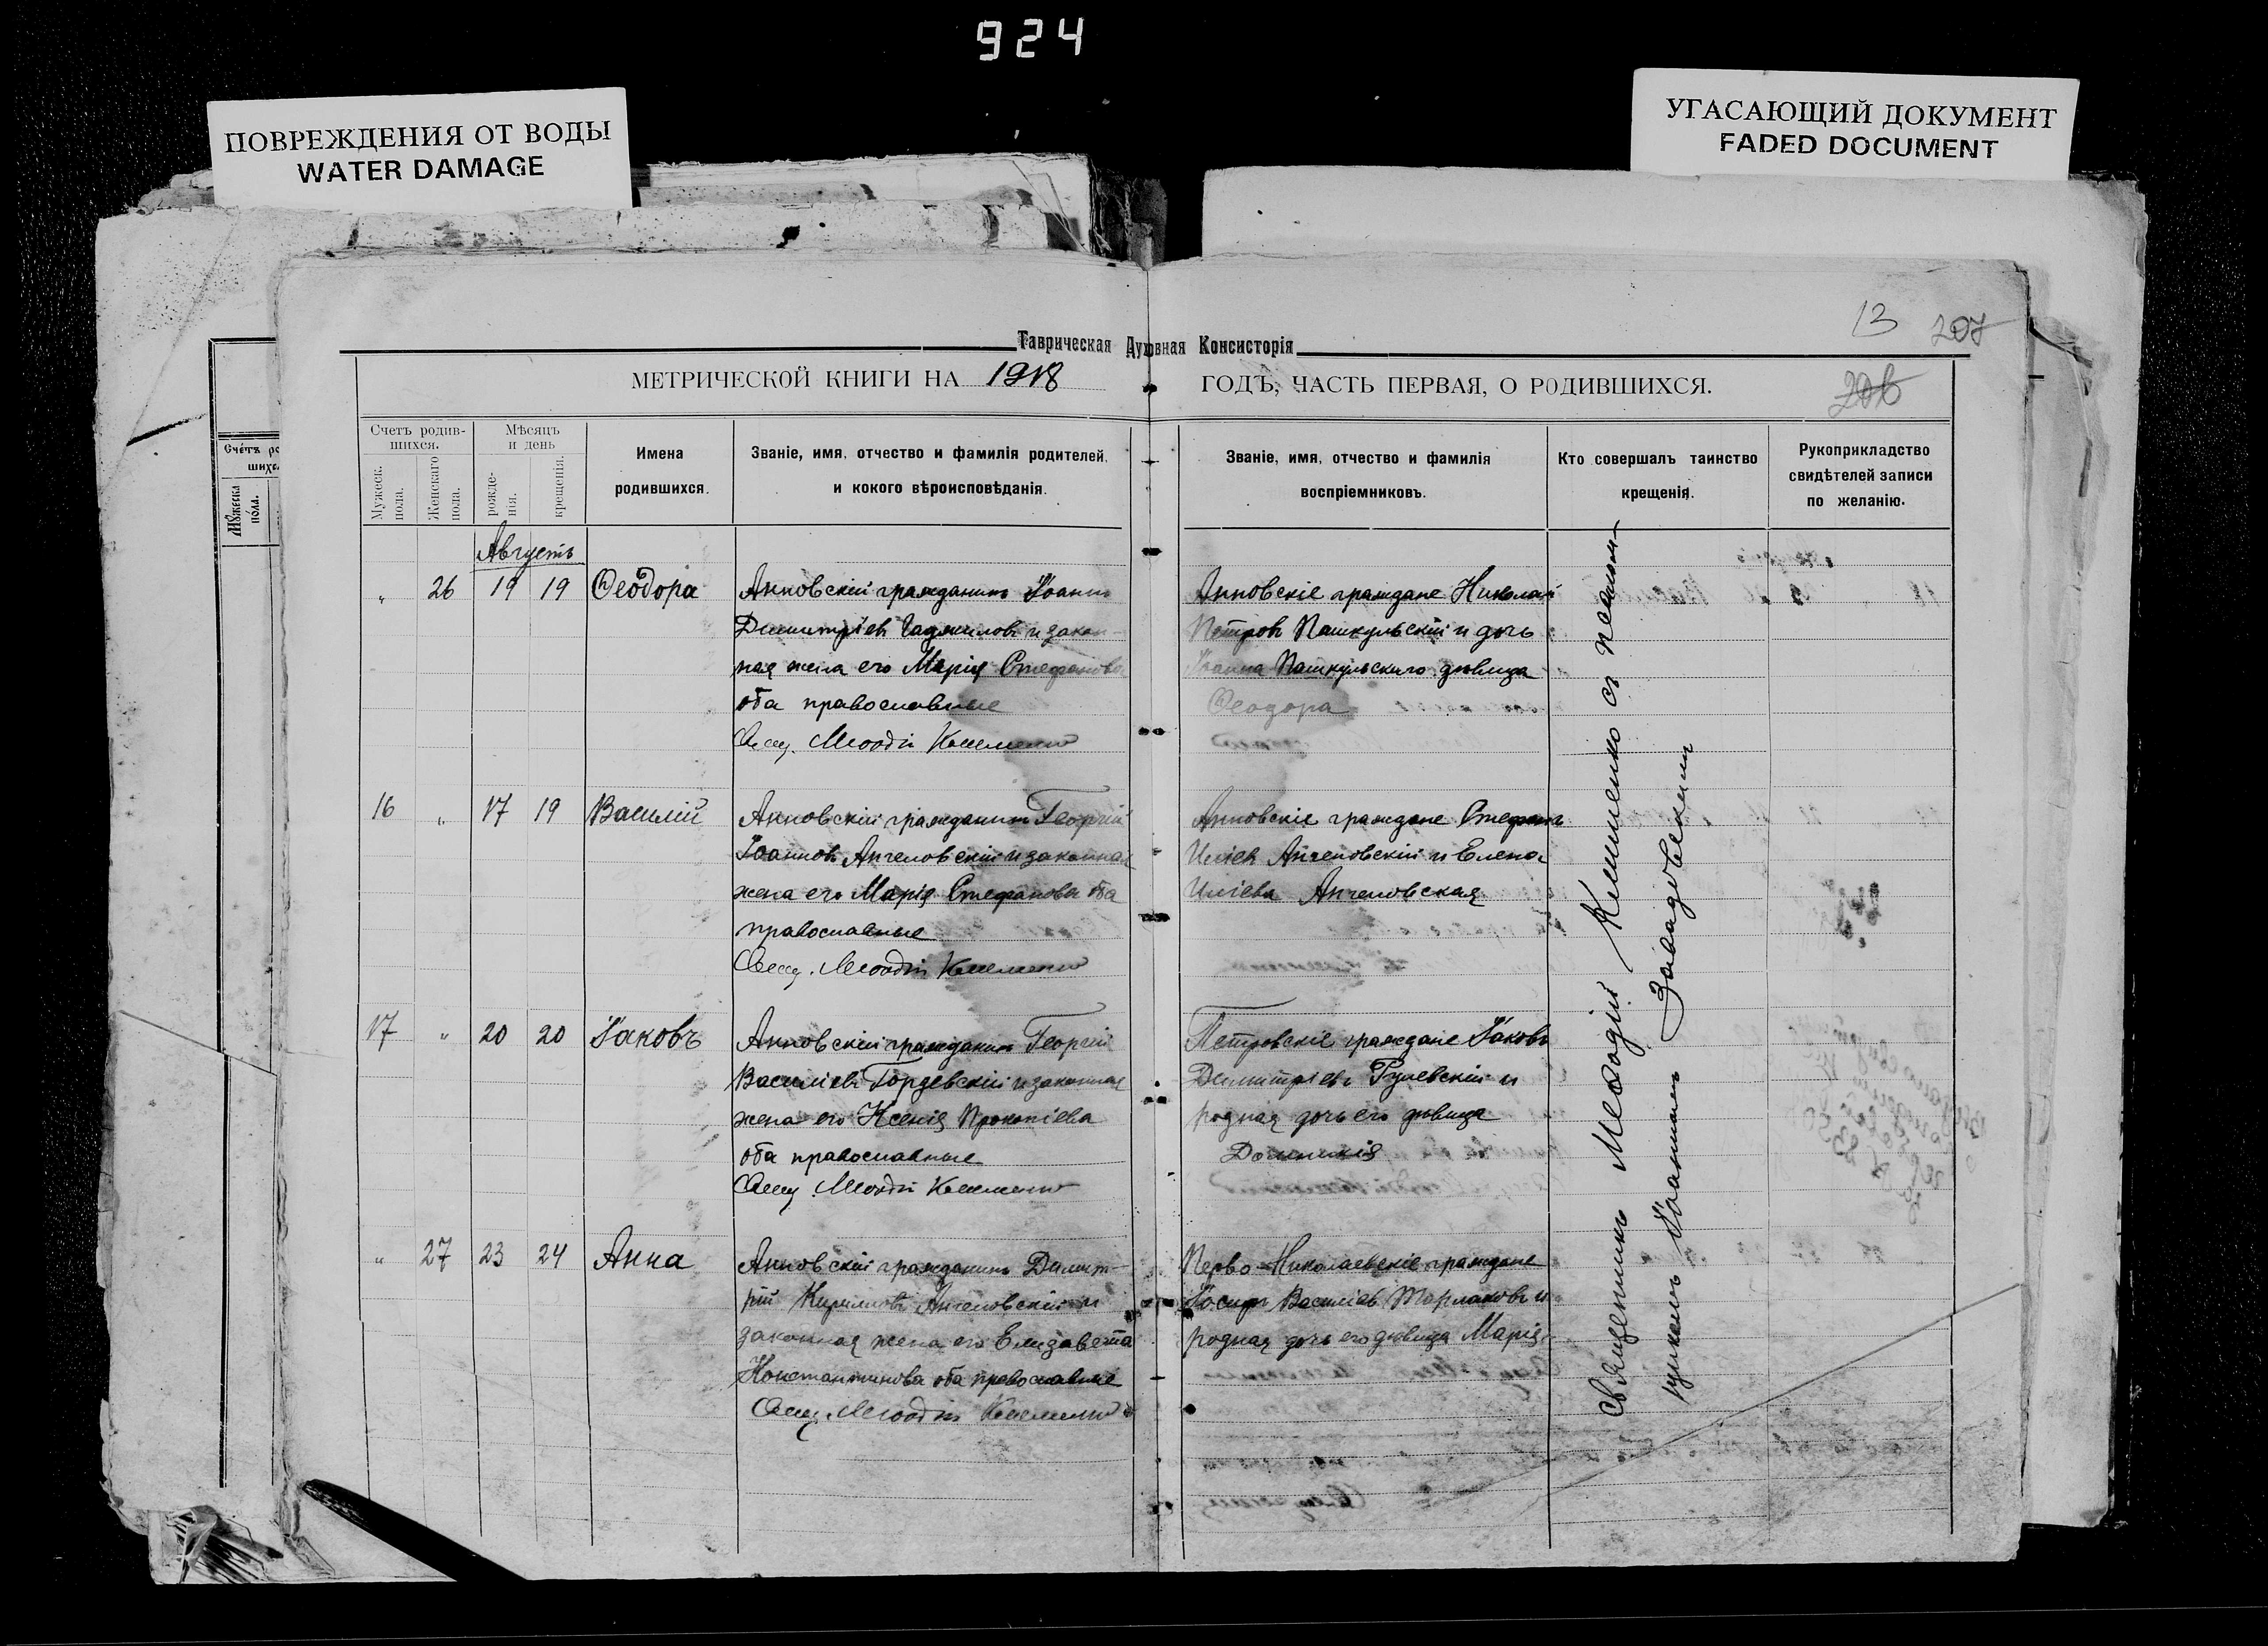 924
ПОВРЕЖДЕНИЯ ОТ ВОДЫ
WATER DAMAGE
УГАСАЮЩИЙ ДОКУМЕНТ
FADED DOCUMENT
13 207
Таврическая Духовная Консисторія
МЕТРИЧЕСКОЙ КНИГИ НА 1918 ГОДЪ, ЧАСТЬ ПЕРВАЯ, О РОДИВШИХСЯ.
206
Счетъ родив-
шихся.
Мужеск.
пола.
Женскаго
пола.
Мѣсяцъ
и день
рожде-
нія.
крещенія.
Имена
родившихся.
Званіе, имя, отчество и фамилія родителей,
и кокого вѣроисповѣданія.
Званіе, имя, отчество и фамилія
воспріемниковъ.
Кто совершалъ таинство
крещенія.
Рукоприкладство
свидѣтелей записи
по желанію.
Августъ
" 26 19 19 Ѳеодора
Анновскій гражданинъ Іоаннъ
Димитріевъ и закон-
ная жена его Марія Стефанова
оба православные
Свящ. Меѳодій Кешменко
Анновскіе граждане Николай
Петровъ Пашкульскій и дочь
Іоанна Пашкульскаго дѣвица
Ѳеодора
16 " 17 19 Василій
Анновскій гражданинъ Георгій
Іоанновъ Ангеловскій и законная
жена его Марія Стефанова оба
православные
Свящ. Меѳодій Кешменко
Анновскіе граждане Стефанъ
Иліевъ Ангеловскій и Елена
Иліева Ангеловская
17 " 20 20 Іаковъ
Анновскій гражданинъ Георгій
Василіевъ и законная
жена его Ксенія Прокопіева
оба православные
Свящ. Меѳодій Кешменко
Петровскіе граждане Іаковъ
Димитріевъ и
родная дочь его дѣвица
Домникія
" 27 23 24 Анна
Анновскій гражданинъ Димит-
рій Кирилловъ Ангеловскій и
законная жена его Елизавета
Константинова оба православные
Свящ. Меѳодій Кешменко
Перво-Николаевскіе граждане
Іосифъ Василіевъ Тарлаковъ и
родная дочь его дѣвица Марія
Священникъ Меѳодій Кешменко съ псалом-
щикомъ Іоанномъ Завадовскимъ